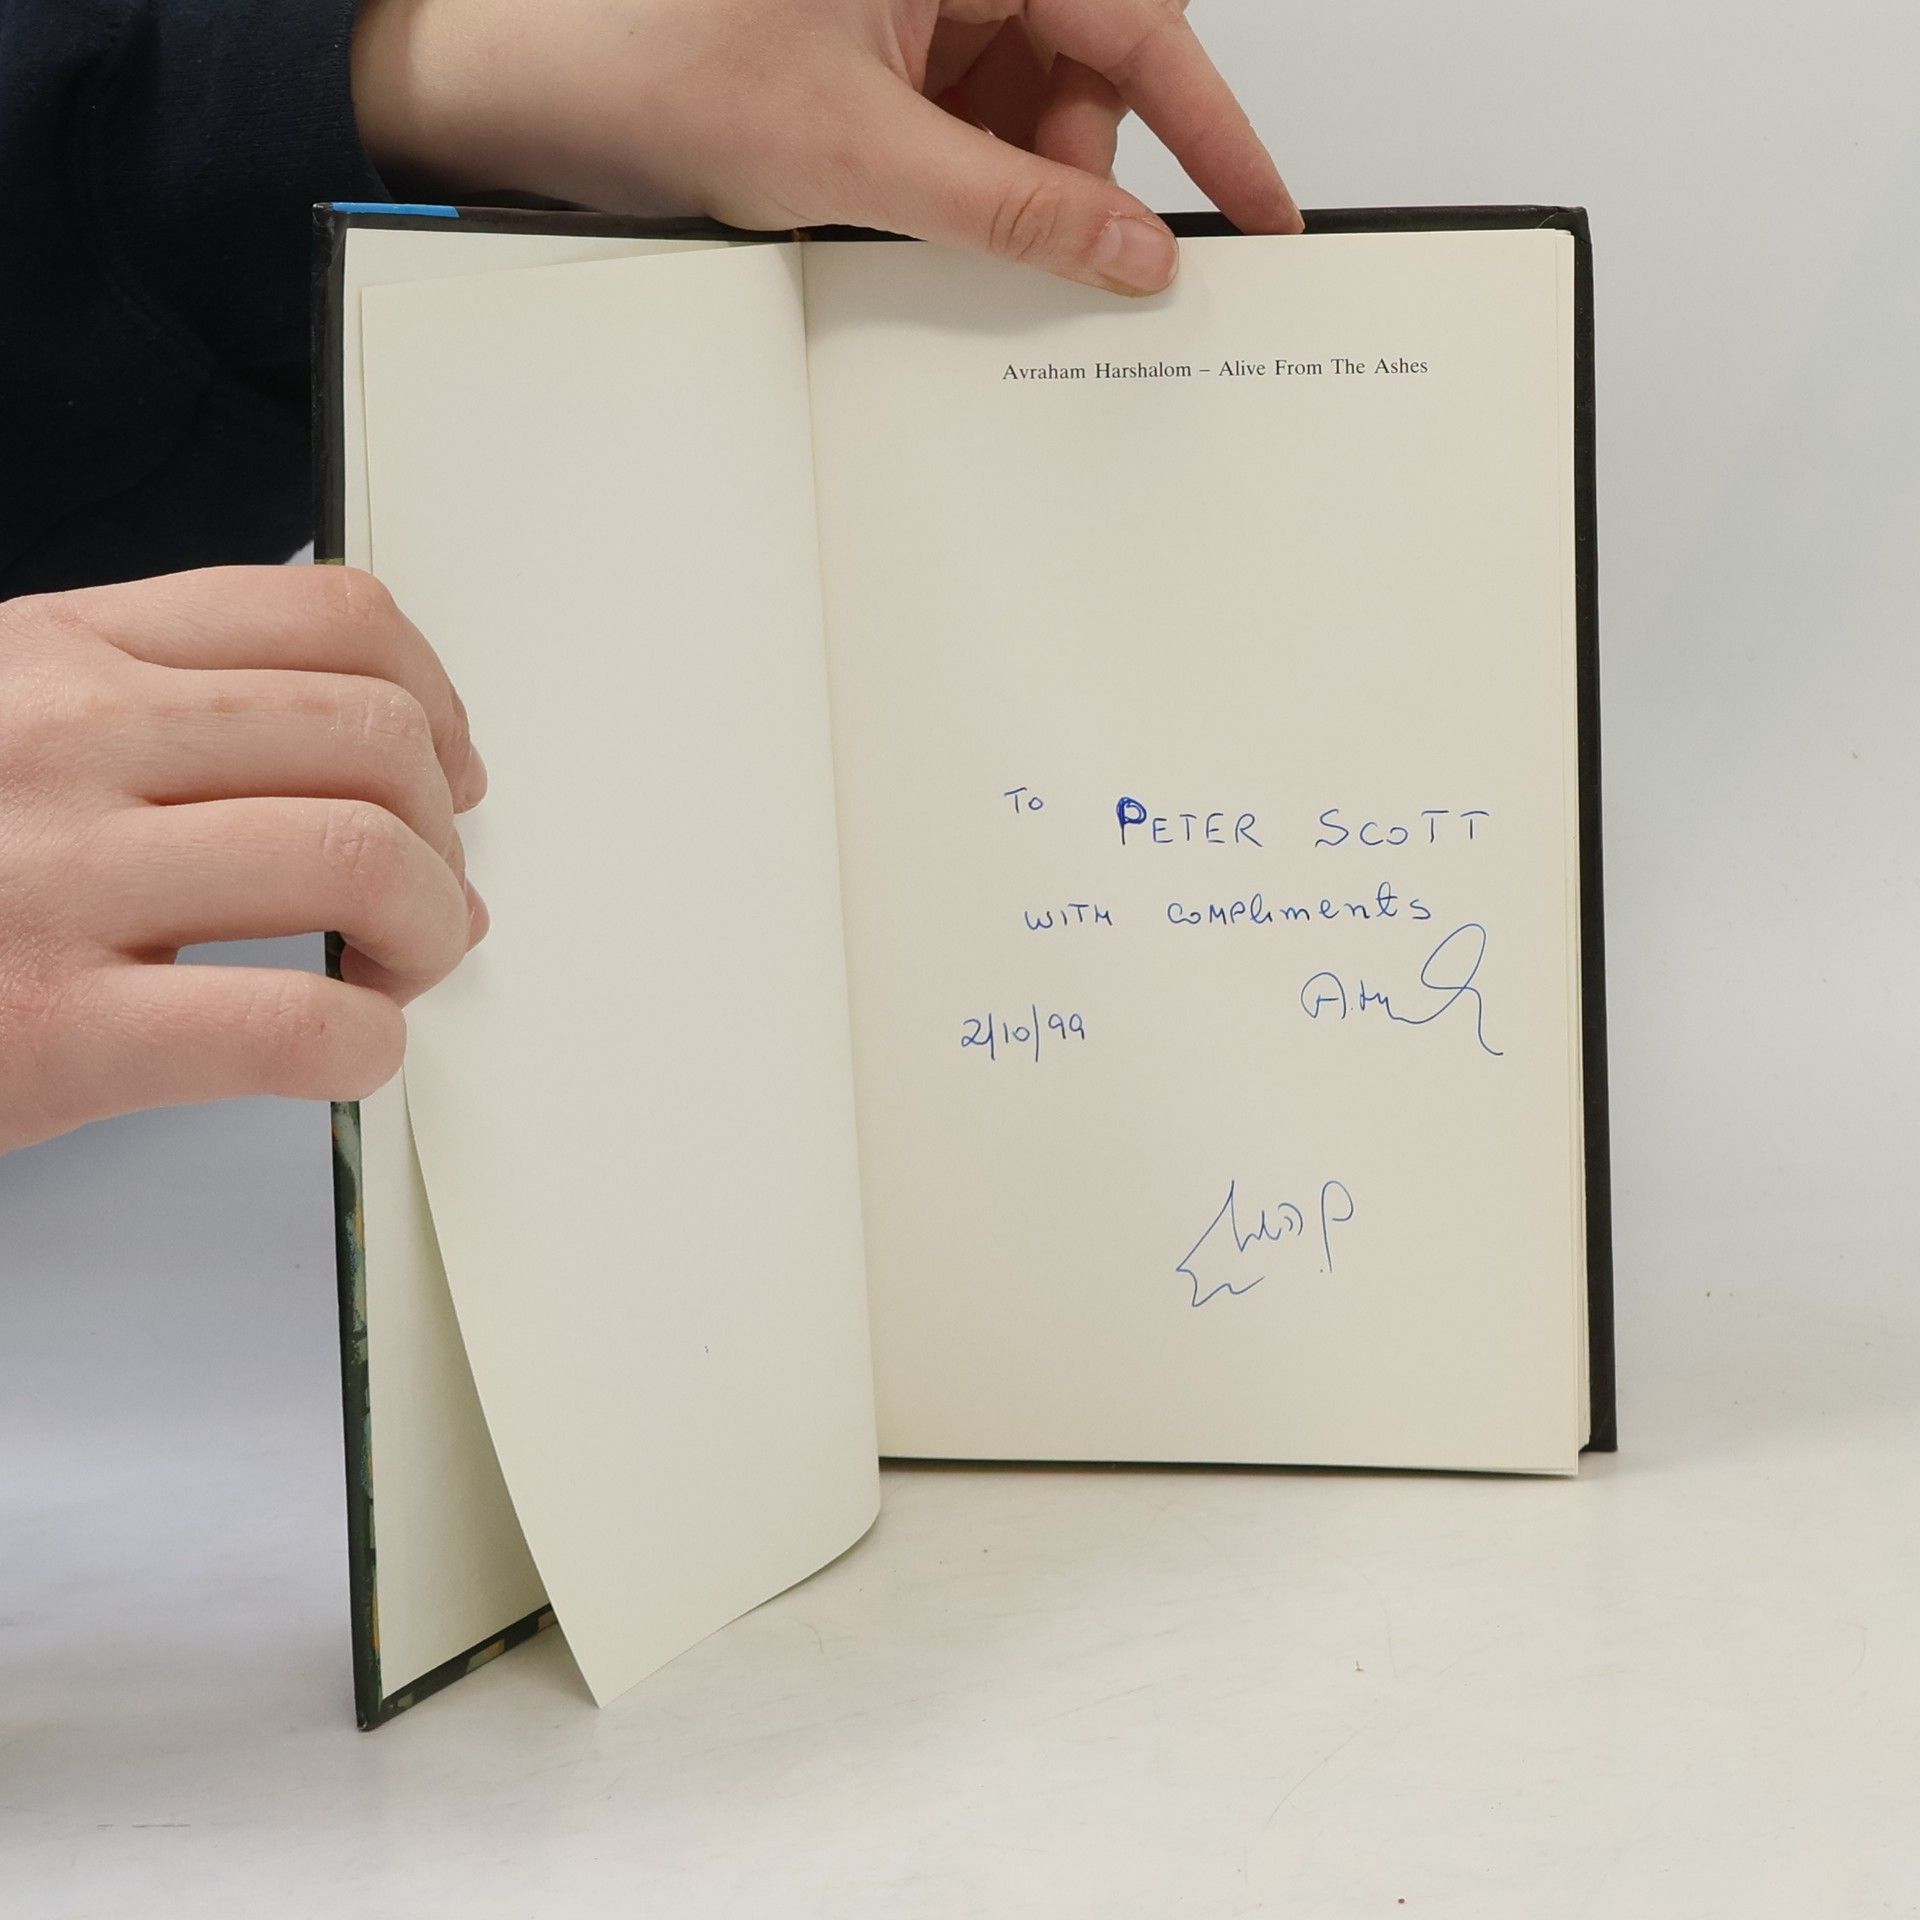 Avraham Harshalom – Alive From The Ashes
To PETER SCOTT
WITH COMPliments
2/10/99